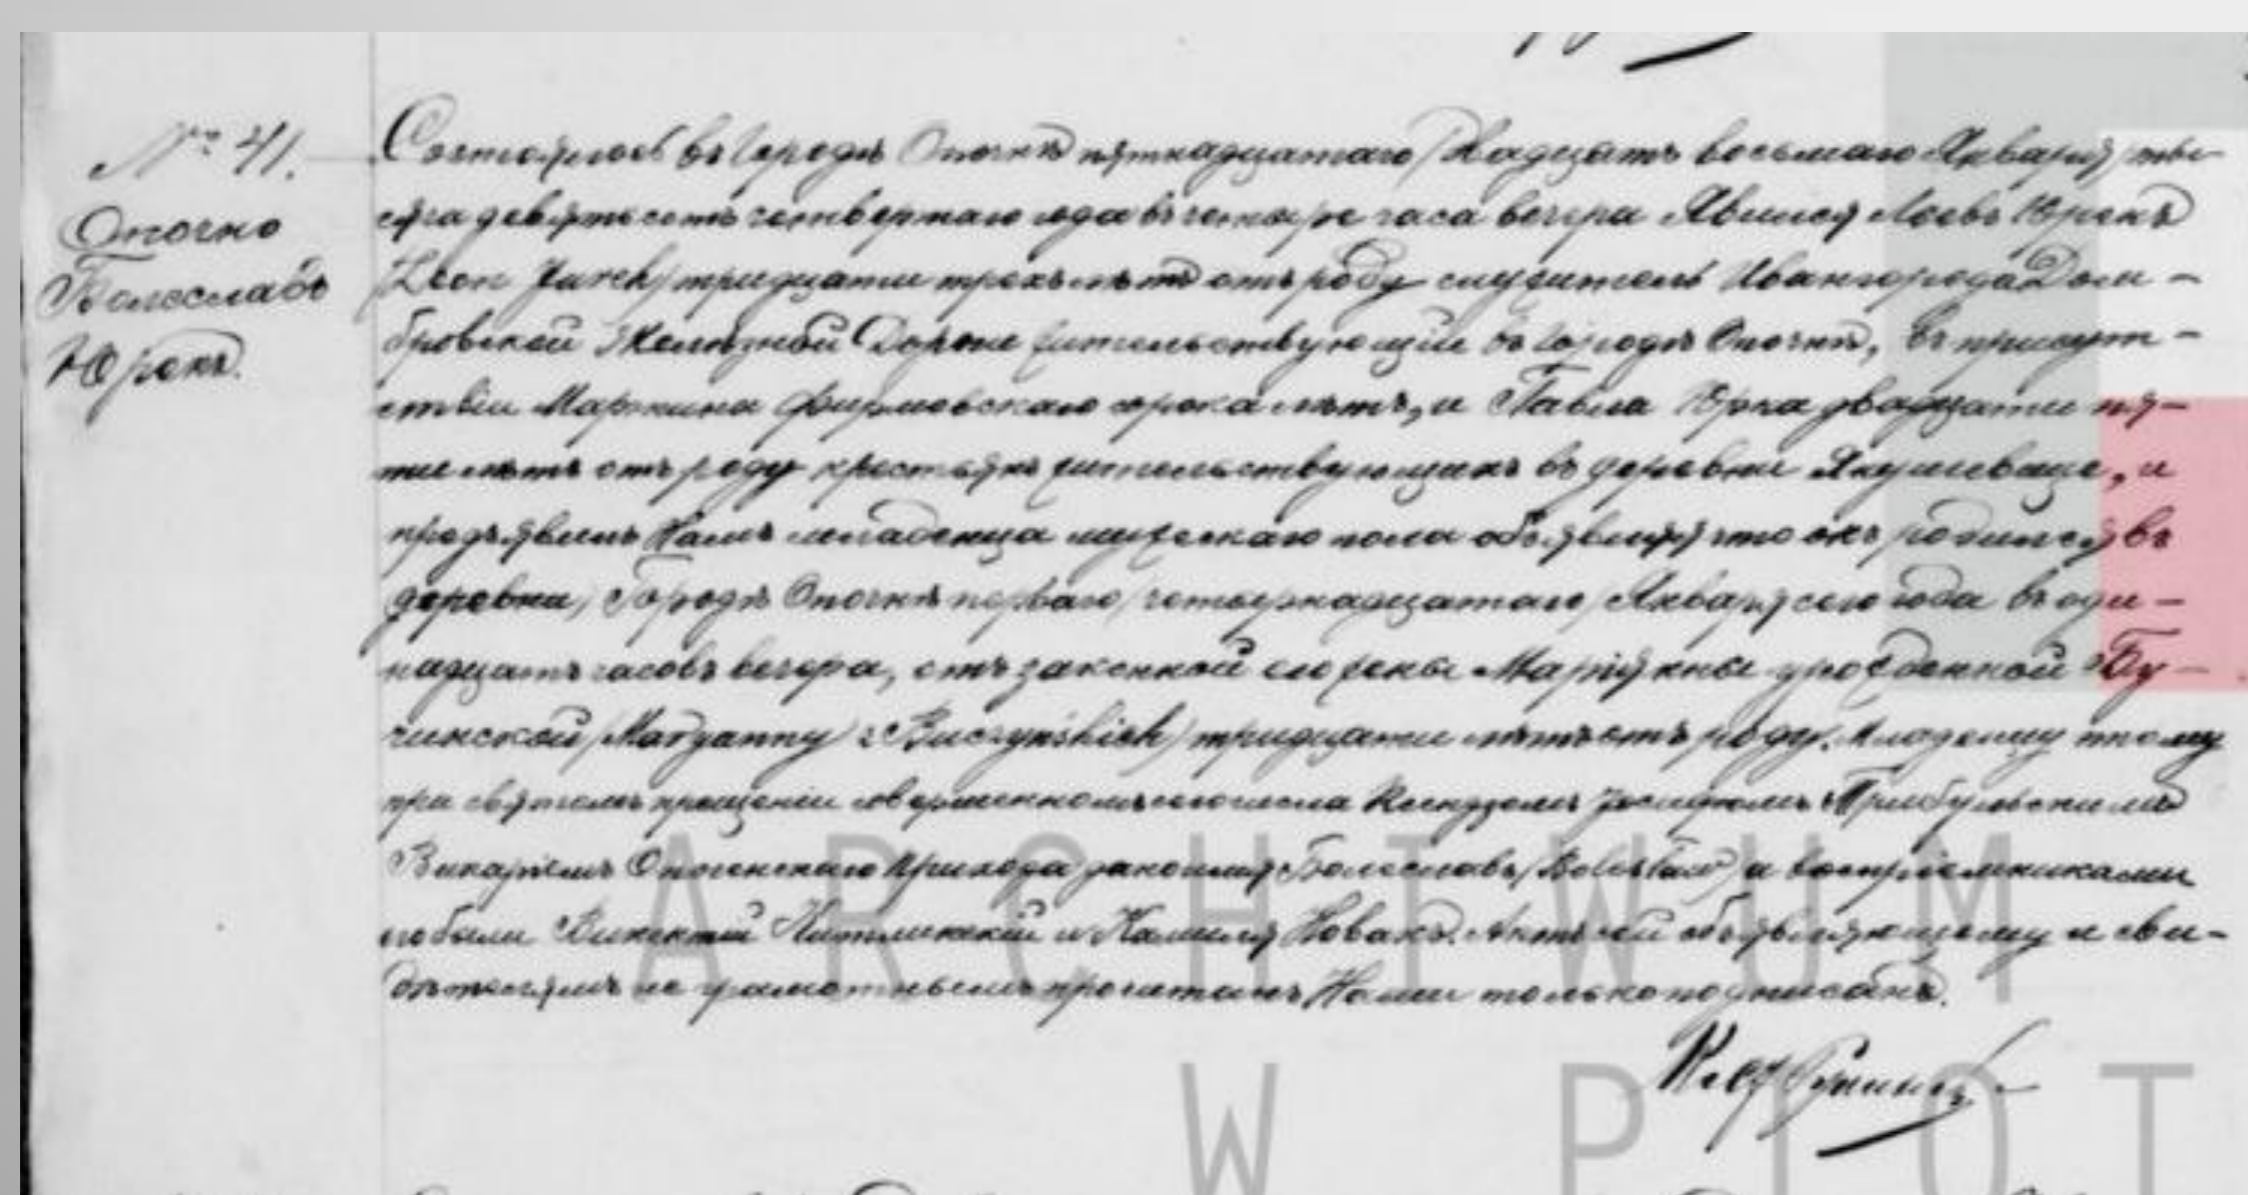 № 41.
Опочно
Болеславъ
Юрекъ.
Состоялось въ городѣ Опочнѣ пятнадцатаго/двадцать восьмаго Января/ты-
сяча девятьсотъ четвертаго года въ четыре часа вечера Явился Левъ Юрекъ
/Leon Jurek/ тридцати трехъ лѣтъ отъ роду служитель Ивангорода Дом-
бровской Желѣзной Дороги жительствующій въ городѣ Опочнѣ, въ присут-
ствіи Марцина сорока лѣтъ, и Павла Юрка двадцати пя-
ти лѣтъ отъ роду крестьянъ жительствующихъ въ деревни, и
предъявилъ Намъ младенца мужескаго пола объявляя что онъ родился въ
деревни, Городѣ Опочнѣ перваго/четырнадцатаго/Января сего года въ оди-
надцать часовъ вечера, отъ законной его жены Маріянны урожденной Бу-
чинской/Maryanny z Buczyńskich/ тридцати лѣтъ отъ роду. Младенцу тому
при святомъ крещеніи совершенномъ сего числа Ксендзомъ Іосифомъ
Викаріемъ Опоченскаго Прихода дано имя Болеславъ/Bolesław/ а воспріемниками
его были Викентій и Камиля Новакъ. Актъ сей объявляющему и сви-
дѣтелямъ не грамотнымъ прочитанъ Нами только подписанъ.
ARCHIWUM
W PIOT